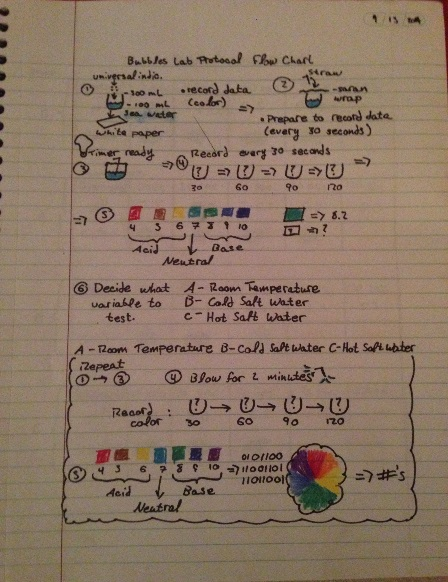 9 13
Bubbles Lab Protocol Flow Chart
universal indic.
① -300 mL
-100 mL
Sea water
white paper
• record data
(color) =>
② straw
-saran
wrap
• Prepare to record data
(every 30 seconds)
Timer ready
③ => ④ Record every 30 seconds =>
? => ? => ? => ?
30 60 90 120
=> ⑤
4 5 6 7 8 9 10
Acid Base
Neutral
=> 8.2
? => ?
⑥ Decide what
variable to
test.
A - Room Temperature
B - Cold Salt Water
C - Hot Salt Water
A - Room Temperature B - Cold Salt Water C - Hot Salt Water
Repeat
① → ③
④ Blow for 2 minutes
Record
color :
? → ? → ? → ?
30 60 90 120
⑤
4 5 6 7 8 9 10
Acid Base
Neutral
=> 0101100
11001101
11011001
=> #'s